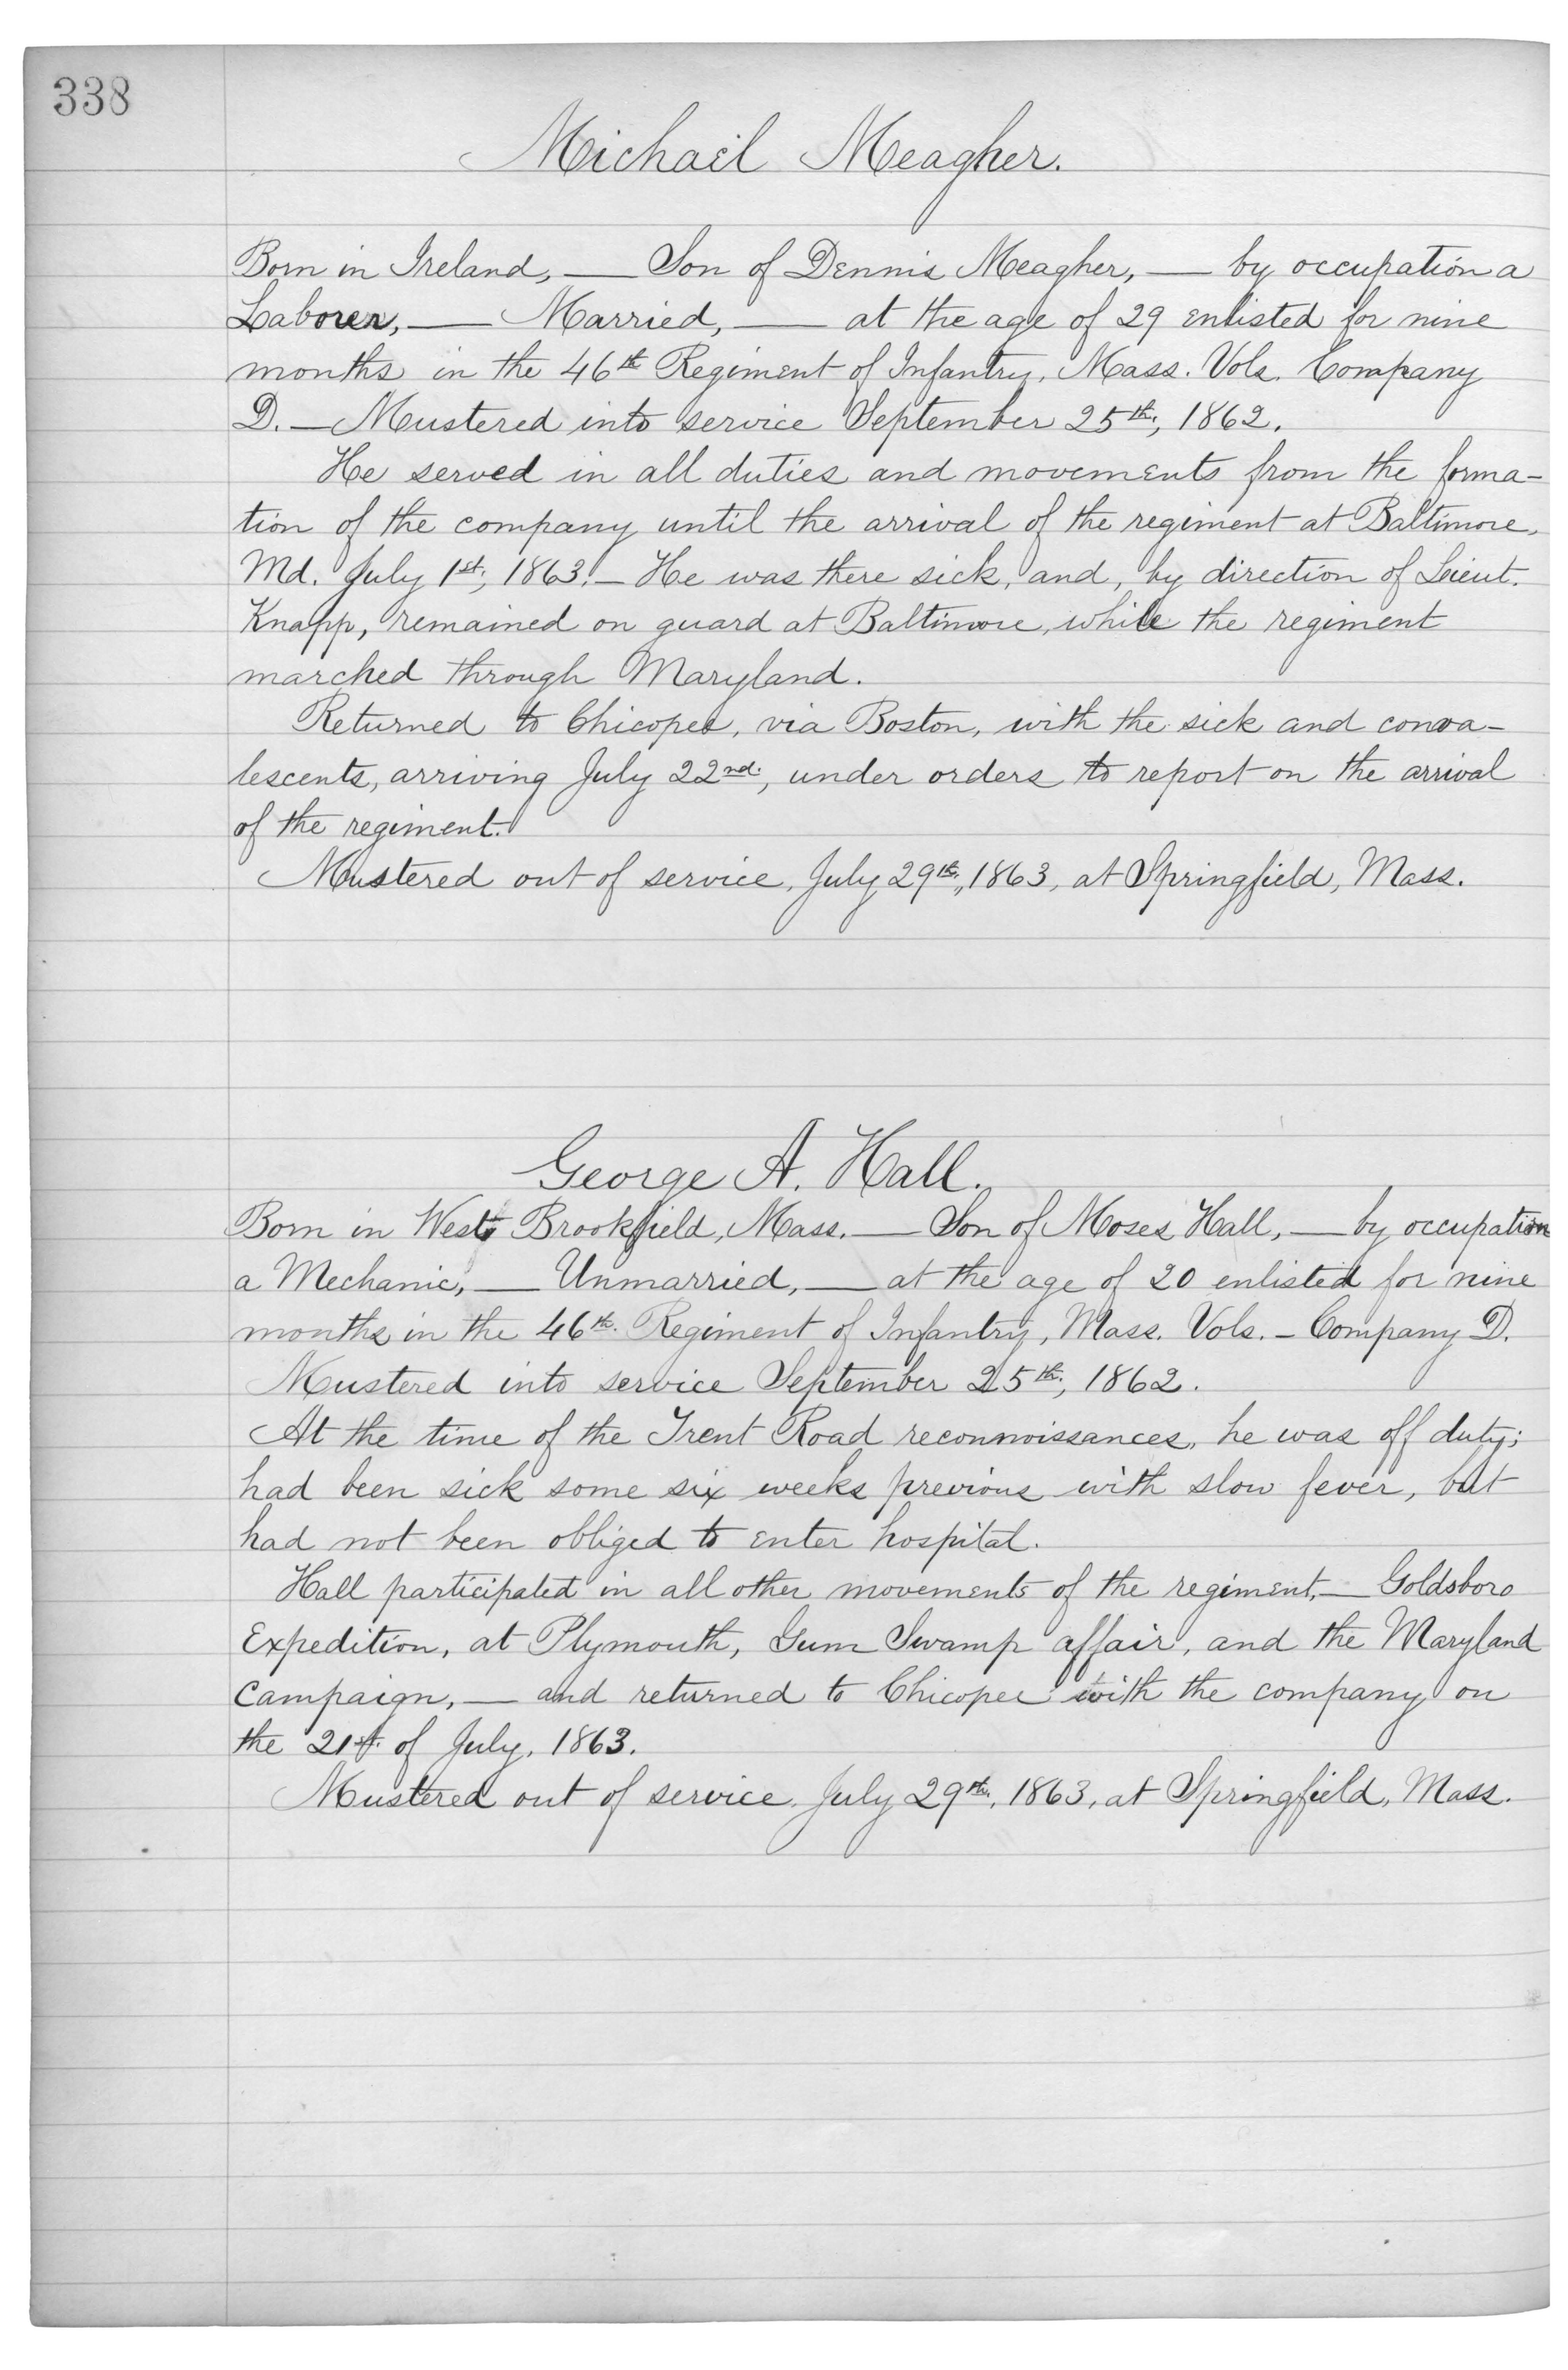 338
Michael Meagher.
Born in Ireland, — Son of Dennis Meagher, — by occupation a
Laborer, — Married, — at the age of 29 enlisted for nine
months in the 46th Regiment of Infantry, Mass. Vols. Company
D. — Mustered into service September 25th, 1862.
He served in all duties and movements from the forma-
tion of the company until the arrival of the regiment at Baltimore,
Md. July 1st, 1863. — He was there sick, and, by direction of Lieut.
Knapp, remained on guard at Baltimore, while the regiment
marched through Maryland.
Returned to Chicopee, via Boston, with the sick and conva-
lescents, arriving July 22nd., under orders to report on the arrival
of the regiment.
Mustered out of service, July 29th., 1863, at Springfield, Mass.
George A. Hall.
Born in West Brookfield, Mass. — Son of Moses Hall, — by occupation
a Mechanic, — Unmarried, — at the age of 20 enlisted for nine
months in the 46th. Regiment of Infantry, Mass. Vols. — Company D.
Mustered into service September 25th., 1862.
At the time of the Trent Road reconnoissances, he was off duty;
had been sick some six weeks previous with slow fever, but
had not been obliged to enter hospital.
Hall participated in all other movements of the regiment, — Goldsboro
Expedition, at Plymouth, Gum Swamp affair, and the Maryland
Campaign, — and returned to Chicopee with the company on
the 21st. of July, 1863.
Mustered out of service, July 29th., 1863, at Springfield, Mass.